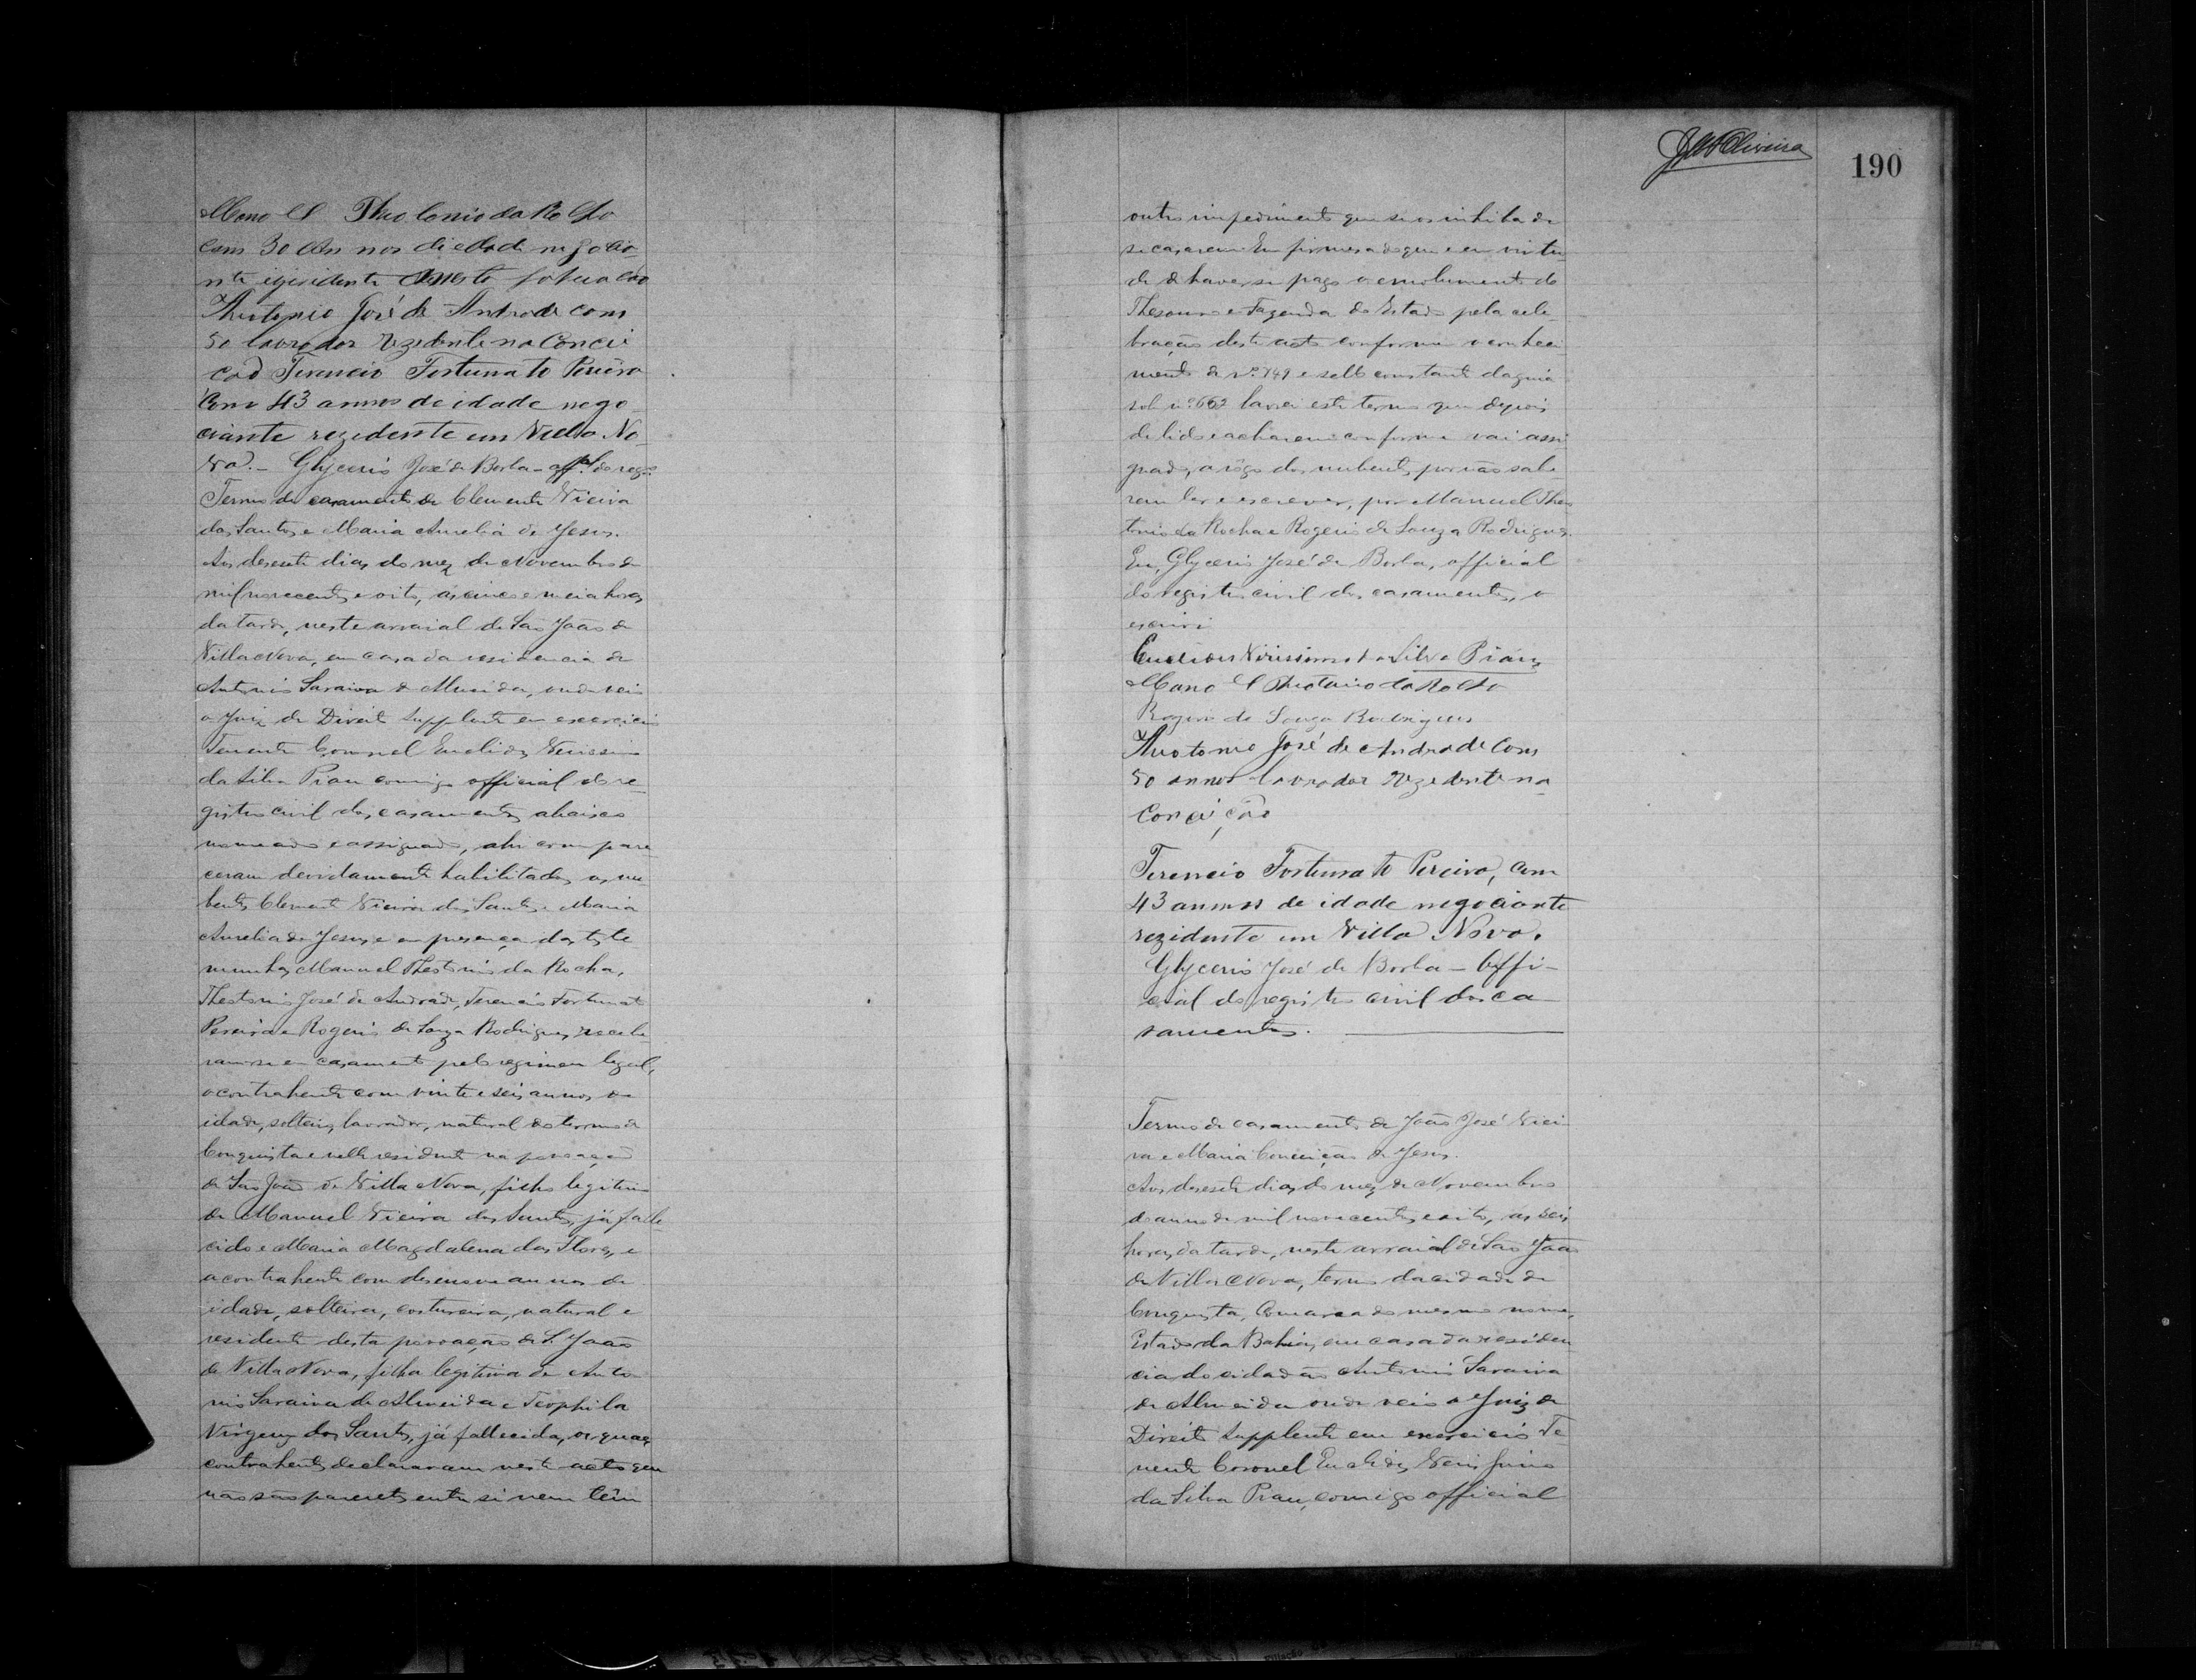 Mano el Theotonio da Rocha
com 30 annos di edade negocia
nte izezidente nesta
Theotonio José de Andrade com
50 lavrador rezidente na Concei
ção Terencio Fortunato Pereira
Com 43 annos de idade nego
ciante rezidente em Villa No
va. Glycerio José de Borba - offal do rego.
Termo de casamento de Clemente Vieira
dos Santos e Maria Aurelia de Jesus.
Aos desesete dias do mez de Novembro de
mil novecentos e oito, ás cinco e meia horas
da tarde, neste arraial de São João de
Villa Nova, em casa da residencia de
Antonio Saraiva de Almeida, onde veio
o Juiz de Direito Supplente em exercicio
Tenente Coronel Euclides Verissimo
da Silva Piau comigo official do re-
gistro civil dos casamentos abaixo
nomeado e assignado, ahi compare
ceram devidamente habilitados os nu
bentes Clemente Vieira dos Santos e Maria
Aurelia de Jesus, e em presença das teste
munhas Manuel Theotonio da Rocha,
Theotonio José de Andrade, Terencio Fortunato
Pereira e Rogerio de Souza Rodrigues, recebe
ram-se em casamento pelo regimen legal,
o contrahente com vinte e seis annos de
idade, solteiro, lavrador, natural do termo de
Conquista e nelle residente na povoação
de São João de Villa Nova, filho legitimo
de Manuel Vieira dos Santos, já falle
cido e Maria Magdalena das Flores, e
a contrahente com desenove annos de
idade, solteira, costureira, natural e
residente desta povoação de S. João
de Villa Nova, filha legitima de Anto
nio Saraiva de Almeida e Teophila
Virgem dos Santos, já fallecida, os quaes
contrahentes declararam neste acto que
não são parentes entre si nem têm
190
outro impedimento que si os inhiba de
se casarem. Em firmesa do que e em virtu
de de haver-se pago o emolumento do
Thesouro e Fazenda do Estado pela cele-
bração deste acto conforme o conheci
mento de nº 149 e sello constante da guia
sob nº 662 lavrei este termo que depois
de lido e acharem conforme vai assi
gnado, a rôgo dos nubentes, por não sabe
rem ler e escrever, por Manuel Theo
tonio da Rocha e Rogerio de Souza Rodrigues.
Eu, Glycerio José de Borba, official
do registro civil dos casamentos, o
escrivi
Euclides Virissimo da Silva Piau
Mano el Theotonio da Rocha
Rogerio de Souza Rodrigues
Theotonio José de Andrade Com
50 annos lavrador rezedente na
Conceição
Terencio Fortunato Pereira, com
43 annos de idade negociante
rezidente em Villa Nova.
Glycerio José de Borba - Offi-
cial do registro civil dos ca
samentos.
Termo de casamento de João José Viei
ra e Maria Conceição de Jesus.
Aos desesete dias do mez de Novembro
do anno de mil novecentos e oito, ás seis
horas da tarde, neste arraial de São João
de Villa Nova, termo da cidade de
Conquista, Comarca do mesmo nome,
Estado da Bahia, em casa da residen
cia do cidadão Antonio Saraiva
de Almeida onde veio o Juiz de
Direito Supplente em exercicio Te-
nente Coronel Euclides Verissimo
da Silva Piau, comigo official